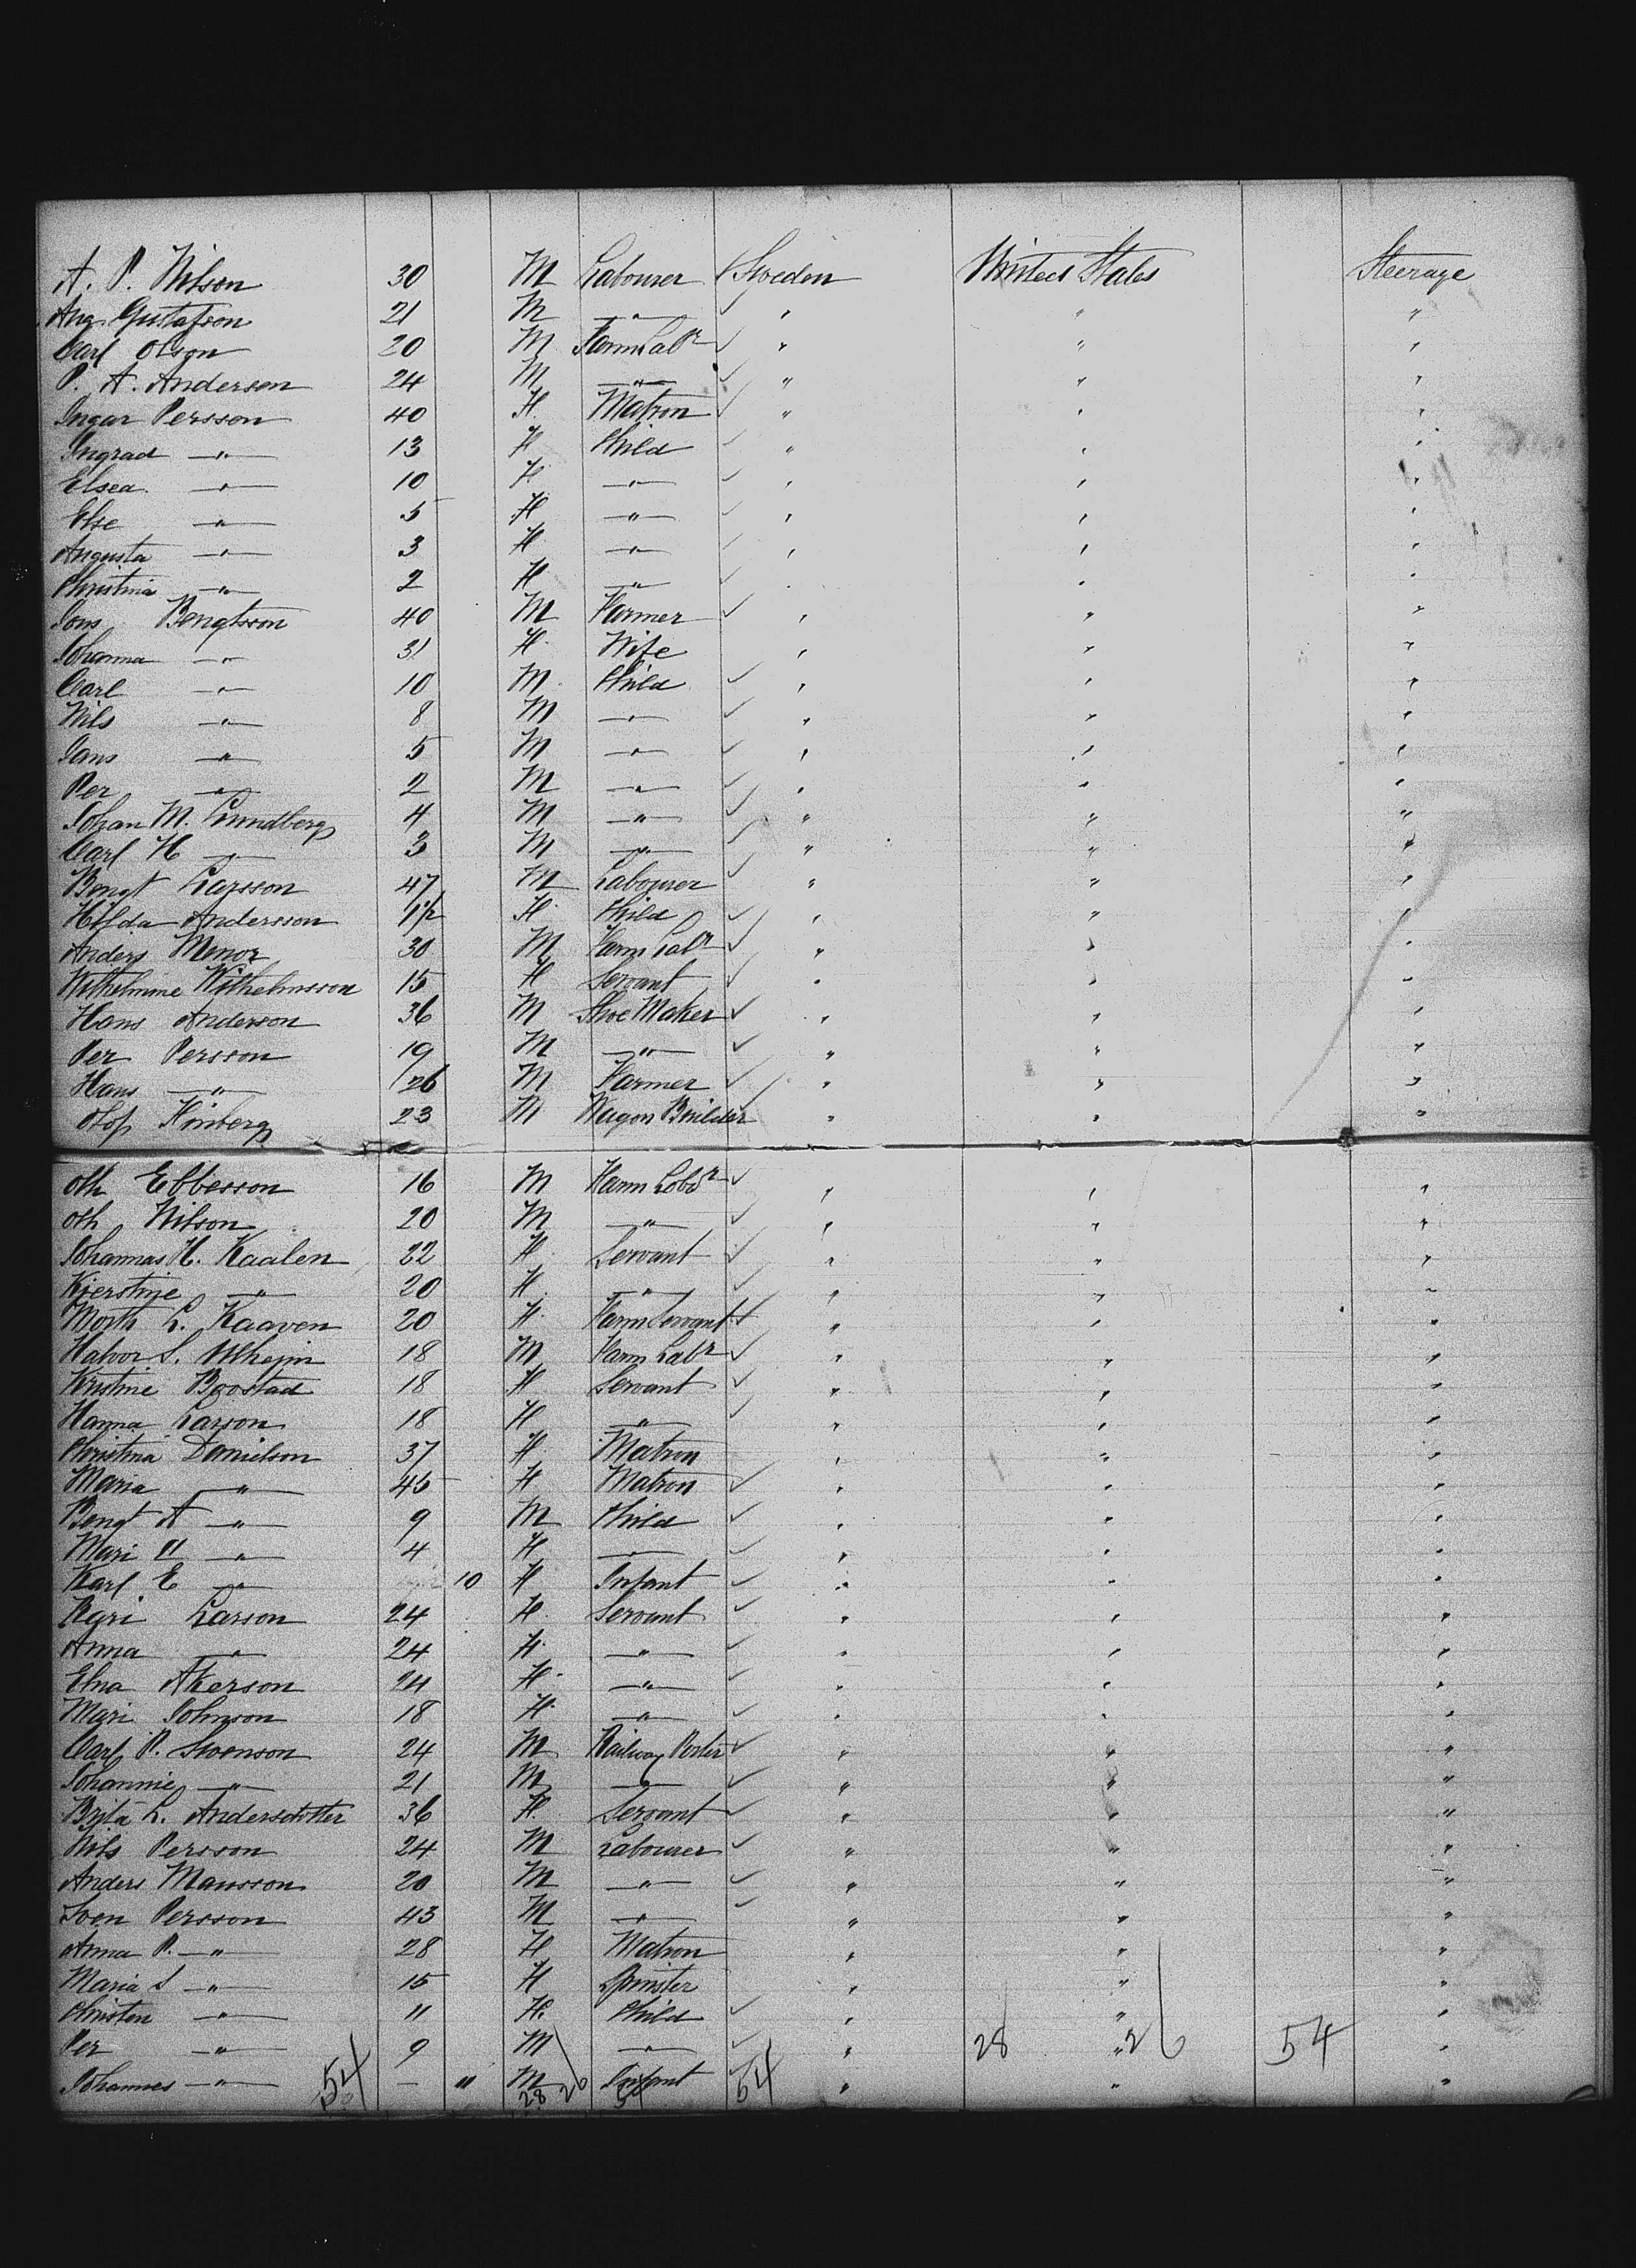 A. P. Nilson 30 M Labourer Sweden United States Steerage
Aug Gustafson 21 M " " " "
Carl Olson 20 M Farm Labr " " "
P. A. Anderson 24 M " " " "
Ingar Persson 40 F. Matron " " "
Ingrad " 13 F Child " " "
Elsea " 10 F " " " "
Else " 5 F " " " "
Augusta " 3 F " " " "
Christina " 2 F " " " "
Jons Bengtsson 40 M Farmer " " "
Johanna " 31 F. Wife " " "
Carl " 10 M Child " " "
Nils " 8 M " " " "
Jans " 5 M " " " "
Per " 2 M " " " "
Johan M. Lundberg 4 M " " " "
Carl H " 3 M " " " "
Bengt Larsson 47 M Labourer " " "
Hilda Andersson 1 1/2 F Child " " "
Anders Menor 30 M Farm Labr " " "
Wilhelmine Wilhelmsson 15 F Servant " " "
Hans Anderson 36 M Shoe Maker " " "
Per Persson 19 M " " " "
Hans " 26 M Farmer " " "
Olof Finberg 23 M Wagon Builder " " "
Ole Ebbesson 16 M Farm Lobor " " "
Ole Nilson 20 M " " " "
Johannas H. Kaalen 22 F Servant " " "
Kjerstine " 20 F " " " "
L. Kaaven 20 F. Farm Servant " " "
Halvor S. 18 M Farm Labr " " "
Kristine Boostad 18 F Servant " " "
Hanna Larson 18 F " " " "
Christina Danielson 37 F Matron " " "
Maria " 45 F Matron " " "
Bengt A " 9 M Child " " "
Mari " 4 F " " " "
Karl E " 10 F Infant " " "
Larson 24 F. Servant " " "
Anna " 24 F. " " " "
Elna Akerson 24 F. " " " "
Mari Johnson 18 F. " " " "
Carl P. Swenson 24 M Railway Porter " " "
Johannie " 21 M " " " "
Brita L. Andersdotter 36 F. Servant " " "
Nils Persson 24 M Labourer " " "
Anders Mansson 20 M " " " "
Sven Persson 43 M " " " "
Anna P. " 28 F Matron " " "
Maria S " 15 F Spinster " " "
Christen " 11 F. Child " " "
Per " 9 M " " 28 " 26 54 "
Johannes " 54 - 11 M Infant 54 " " "
28 26 54